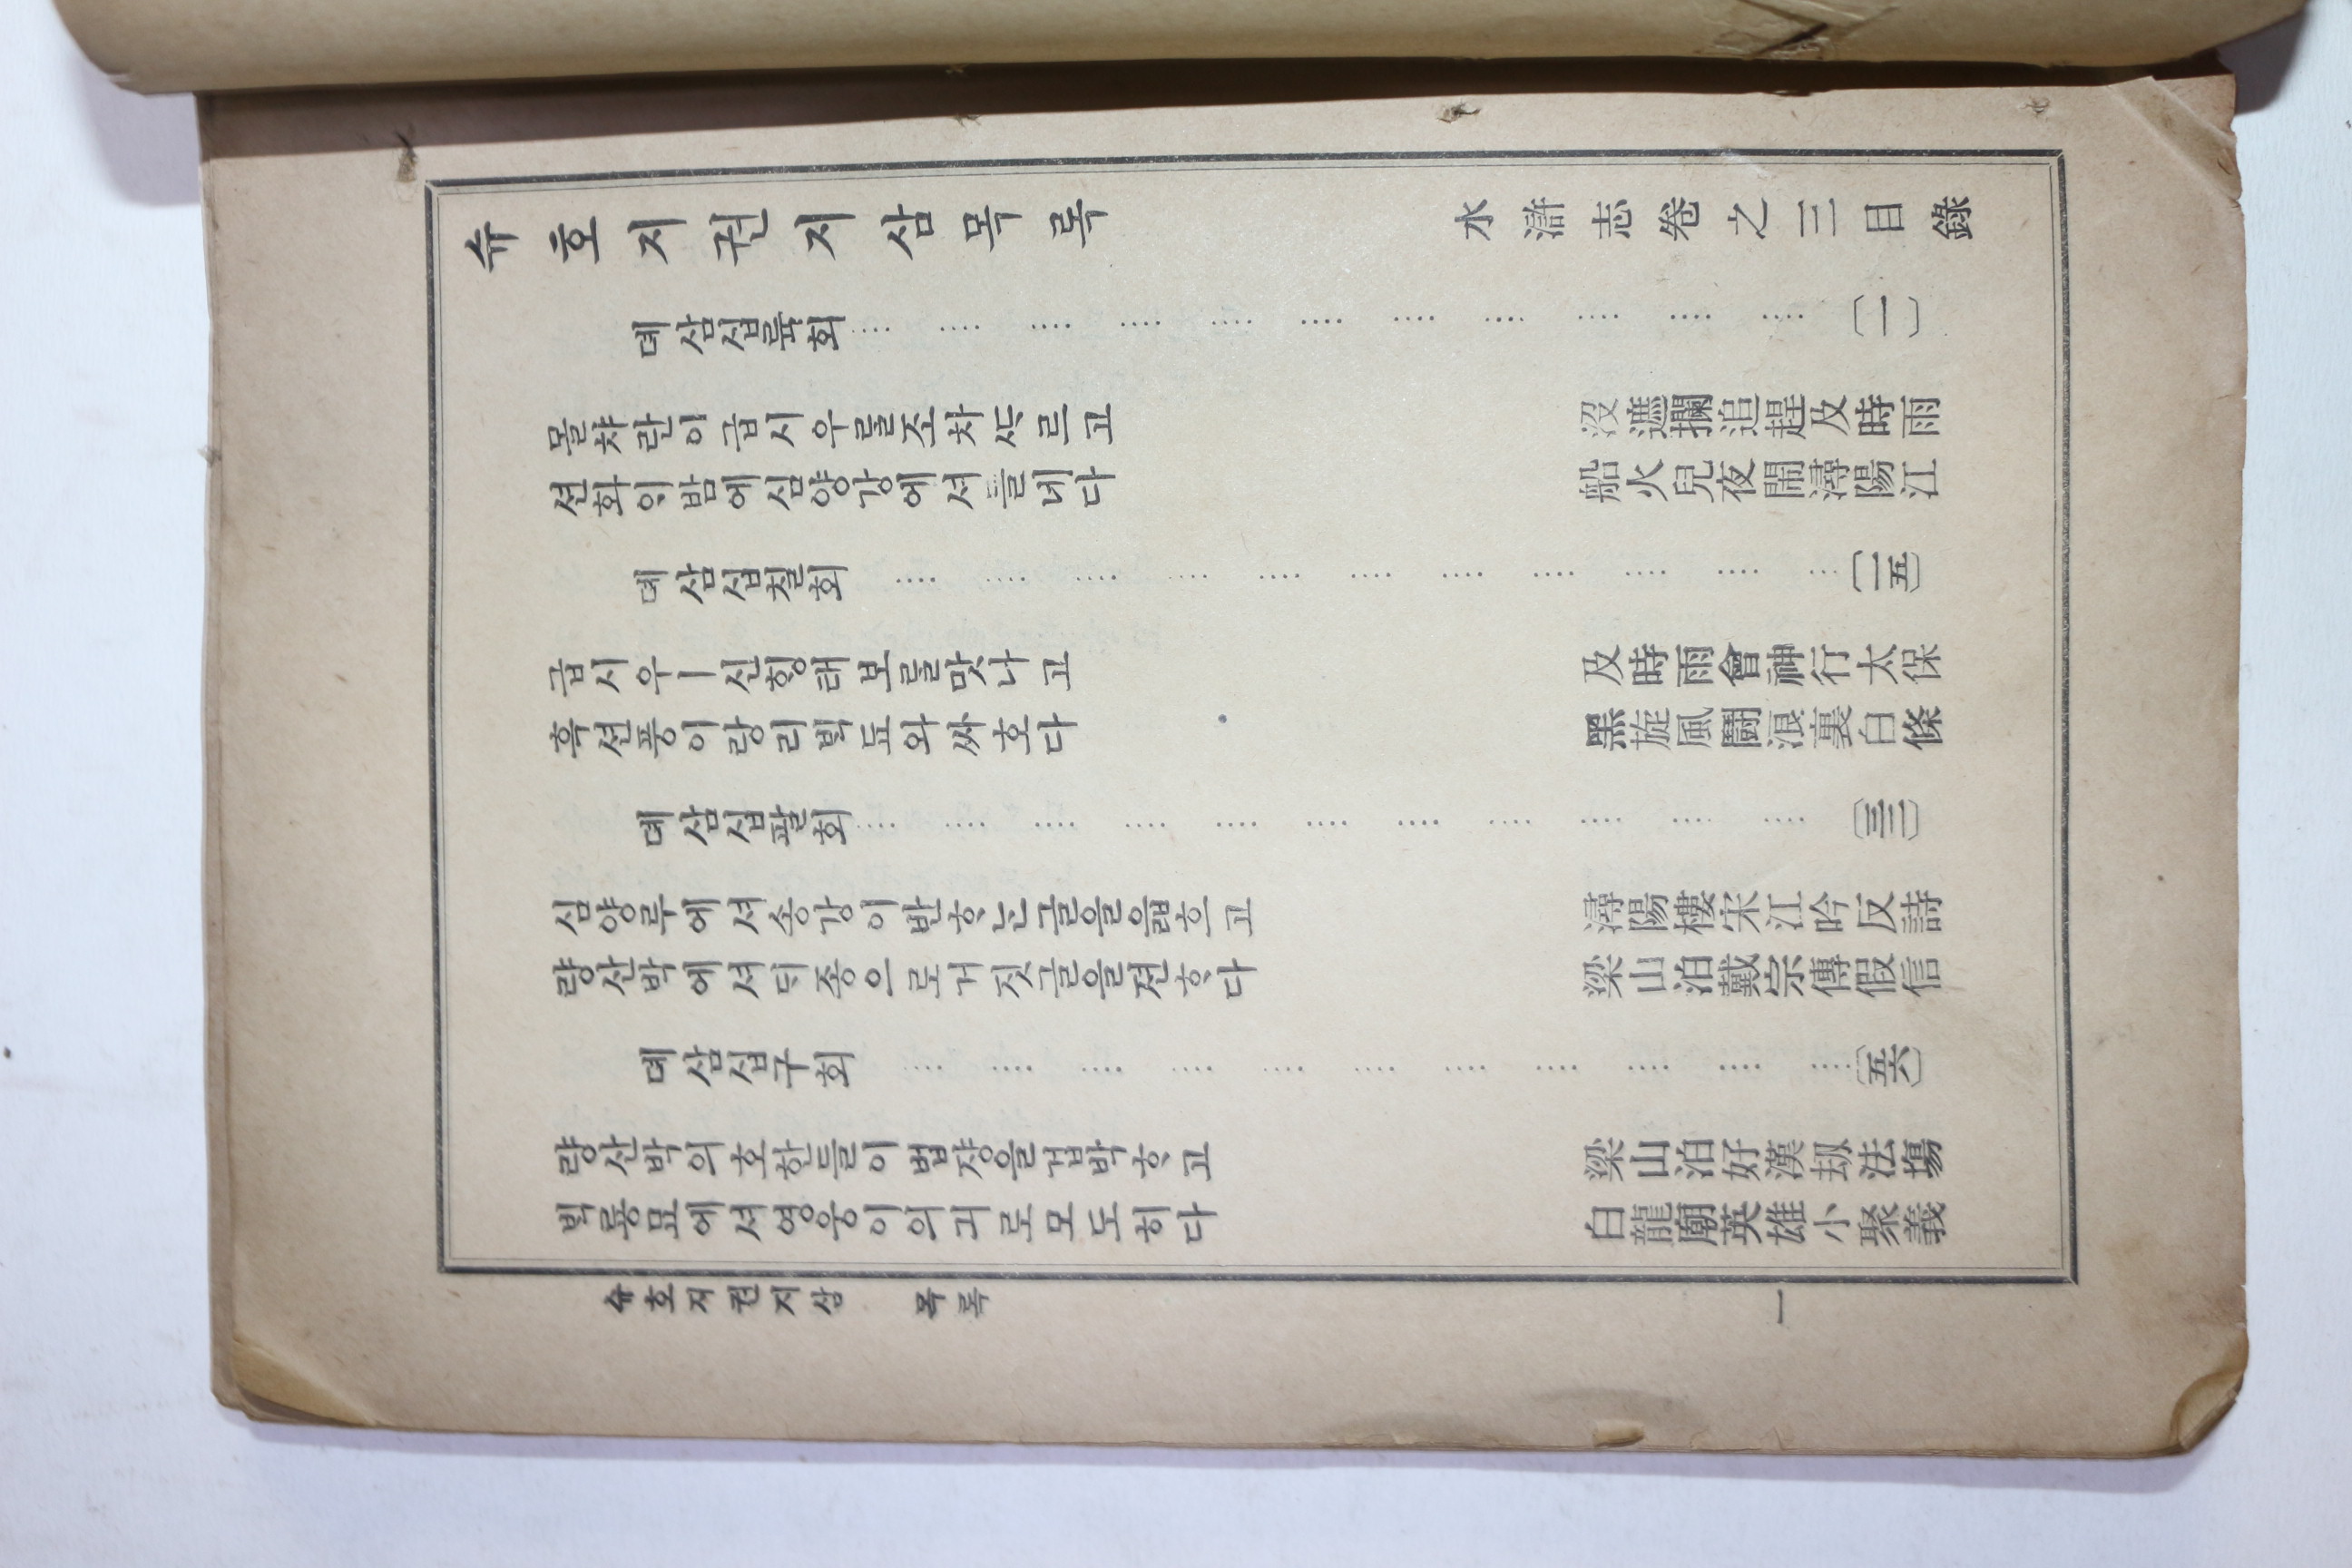 슈호지권지삼목록 水滸志卷之三目錄
뎨삼십륙회 〔一〕
몰챠란이급시우를조차ᄯᅡ르고 沒遮攔追趕及時雨
션화ᄋᆡ밤에심양강에셔들네다 船火兒夜閙潯陽江
뎨삼십칠회 〔一五〕
급시우ㅣ신ᄒᆡᆼ태보를맛나고 及時雨會神行太保
흑션풍이랑리ᄇᆡᆨ됴와싸호다 黑旋風鬪浪裏白條
뎨삼십팔회 〔三三〕
심양루에셔송강이반ᄒᆞᄂᆞᆫ글을읇흐고 潯陽樓宋江吟反詩
량산박에셔ᄃᆡ죵으로거짓글을젼ᄒᆞ다 梁山泊戴宗傳假信
뎨삼십구회 〔五六〕
량산박의호한들이법쟝을겁박ᄒᆞ고 梁山泊好漢刼法塲
ᄇᆡᆨ룡묘에셔영웅이의긔로모도히다 白龍廟英雄小聚義
슈호지권지삼 목록 一